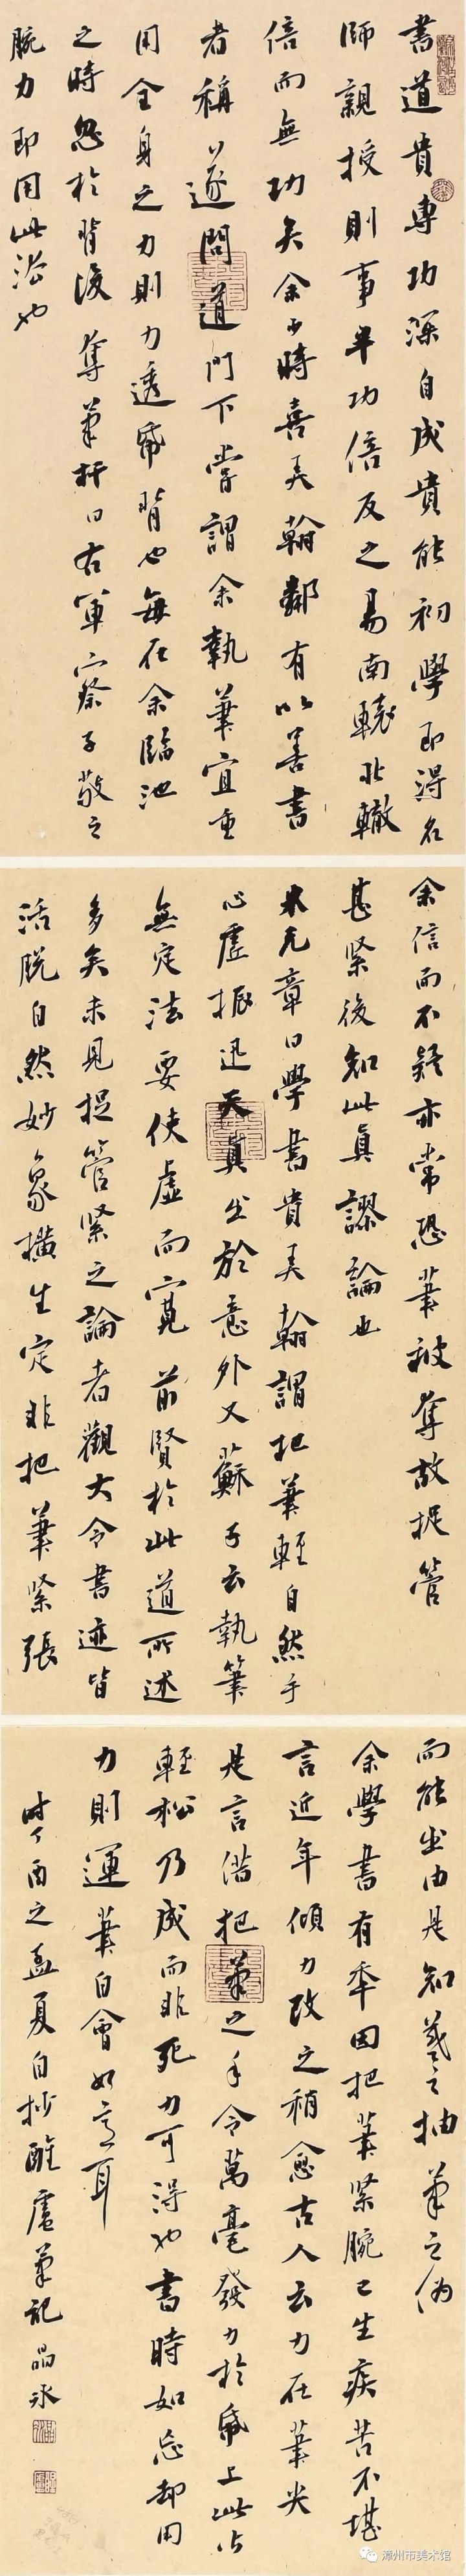 書道貴專功深自成貴能初學即得名
師親授則事半功倍反之易南轅北轍
倍而無功矣余少時喜弄翰鄰有以善書
者稱以遂問道門下嘗謂余執筆宜重
用全身之力則力透紙背也每在余臨池
之時忽於背後奪筆杆曰右軍察子敬之
腕力即用此法也
余信而不疑亦常恐筆被奪故捉管
甚緊後知此真謬論也
米元章曰學書貴弄翰謂把筆輕自然手
心虛振迅天真出於意外又蘇子云執筆
無定法要使虛而寬前賢於此道所述
多矣未見捉管緊之論者觀大令書迹皆
活脫自然妙象橫生定非把筆緊張
而能出由是知羲之抽筆之偽
余學書有年因把筆緊腕已生疾苦不堪
言近年傾力改之稍愈古人云力在筆尖
是言借把筆之手令萬毫發力於紙上此占
輕松乃成而非死力可得也書時如忘却用
力則運筆自會如意耳
時丁酉之孟夏自抄醉廬筆記晶冰
漳州市美术馆